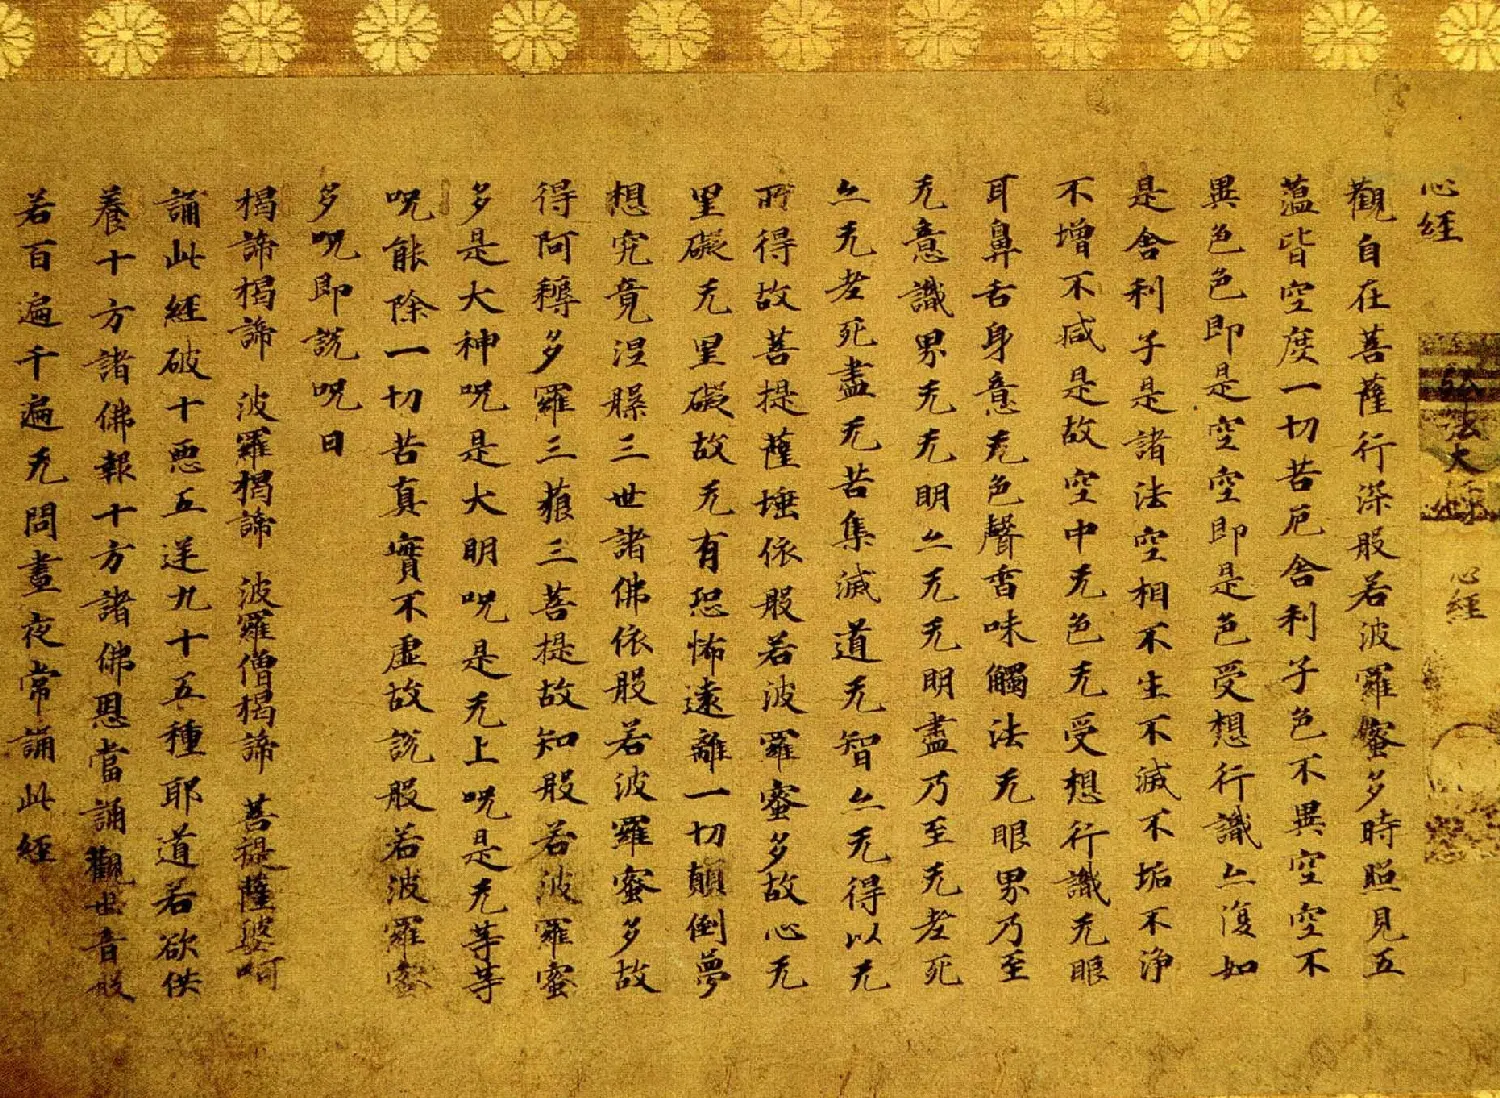 心経
弘法大師 心経
觀自在菩薩行深般若波羅蜜多時照見五
蕰皆空度一切苦厄舍利子色不異空空不
異色色即是空空即是色受想行識亦復如
是舍利子是諸法空相不生不滅不垢不浄
不增不減是故空中无色无受想行識无眼
耳鼻舌身意无色聲香味觸法无眼界乃至
无意識界无无明亦无无明盡乃至无老死
亦无老死盡无苦集滅道无智亦无得以无
所得故菩提薩埵依般若波羅蜜多故心无
罣礙无罣礙故无有恐怖遠離一切顛倒夢
想究竟涅槃三世諸佛依般若波羅蜜多故
得阿耨多羅三藐三菩提故知般若波羅蜜
多是大神呪是大明呪是无上呪是无等等
呪能除一切苦真實不虛故說般若波羅蜜
多呪即說呪曰
揭諦揭諦 波羅揭諦 波羅僧揭諦 菩提薩婆呵
誦此経破十悪五逆九十五種耶道若欲供
養十方諸佛報十方諸佛恩當誦觀世音般
若百遍千遍无問晝夜常誦此経